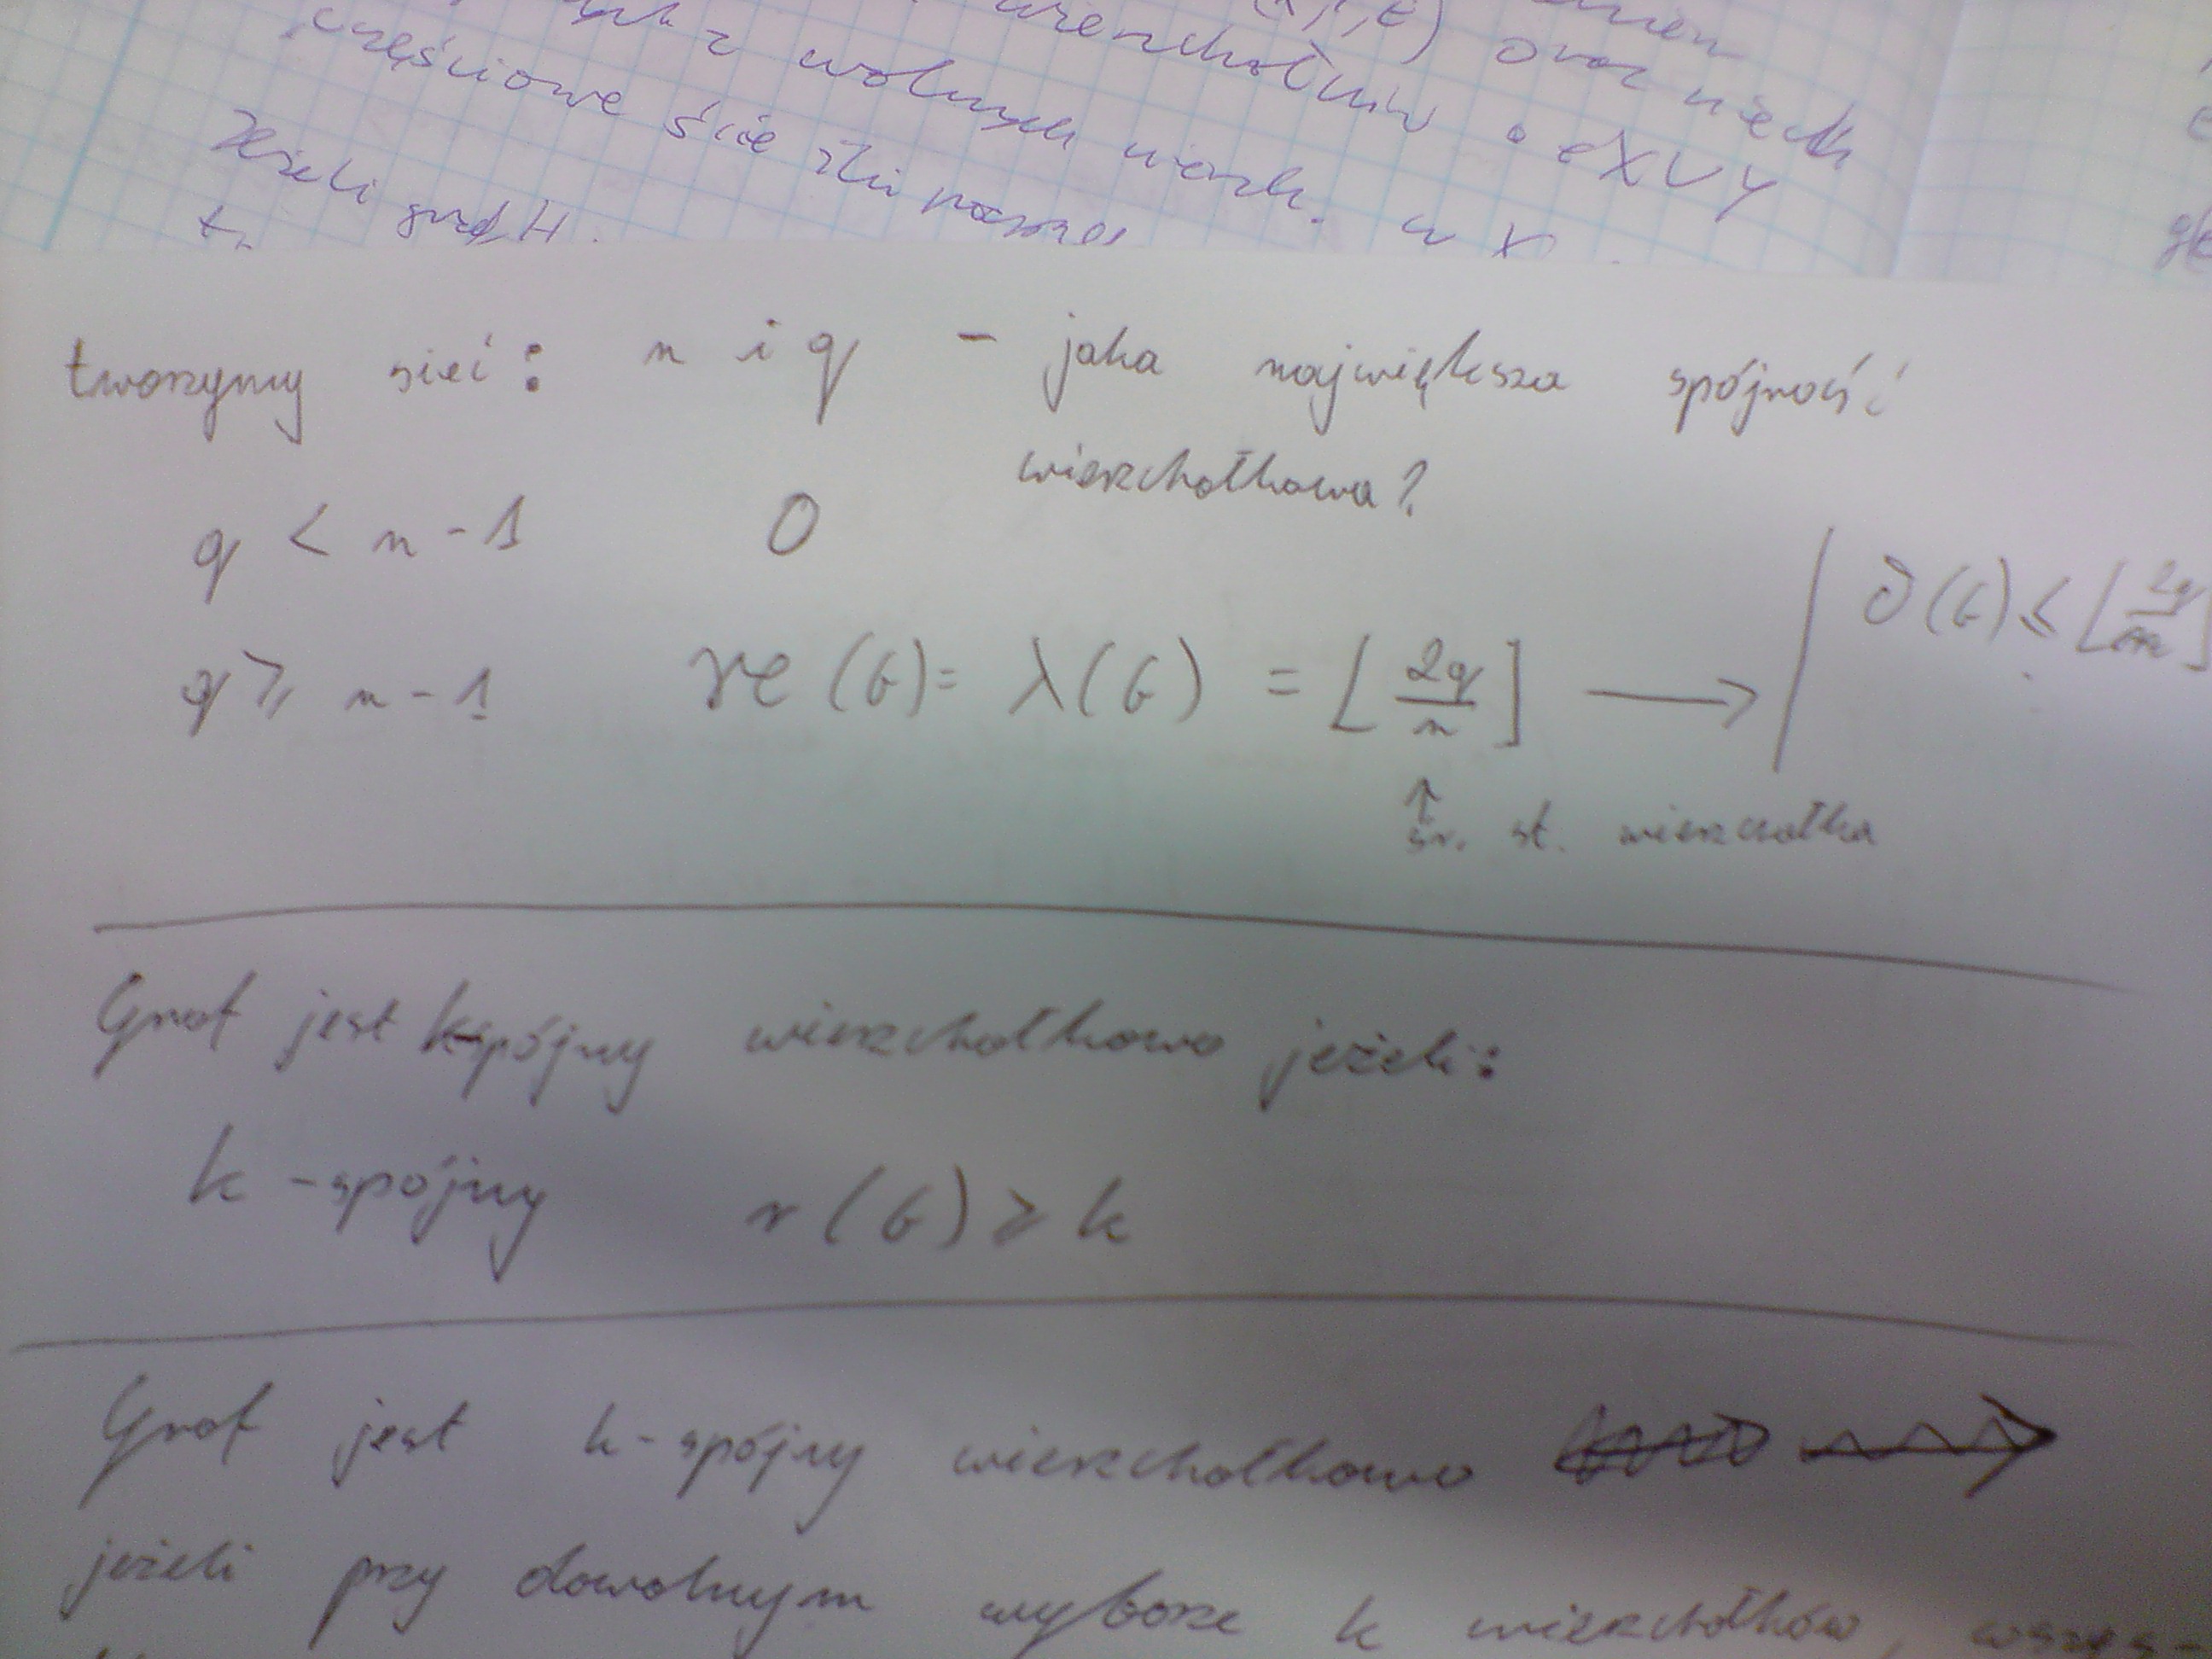 (X,Y,E) oraz niech
wierzchołków • e X ∪ Y
z wolnych wierzch. w X
częściowe
Jeżeli graf H
tworzymy sieć: n i q - jaka największa spójność
wierzchołkowa?
q < n - 1 0
q ≥ n - 1 ϰ(G) = λ(G) = ⌊2q/n⌋ → | ∂(G) ≤ ⌊2q/n⌋
↑
śr. st. wierzchołka
Graf jest k-spójny wierzchołkowo jeżeli:
k - spójny r(G) ≥ k
Graf jest k-spójny wierzchołkowo →
jeżeli przy dowolnym wyborze k wierzchołków,